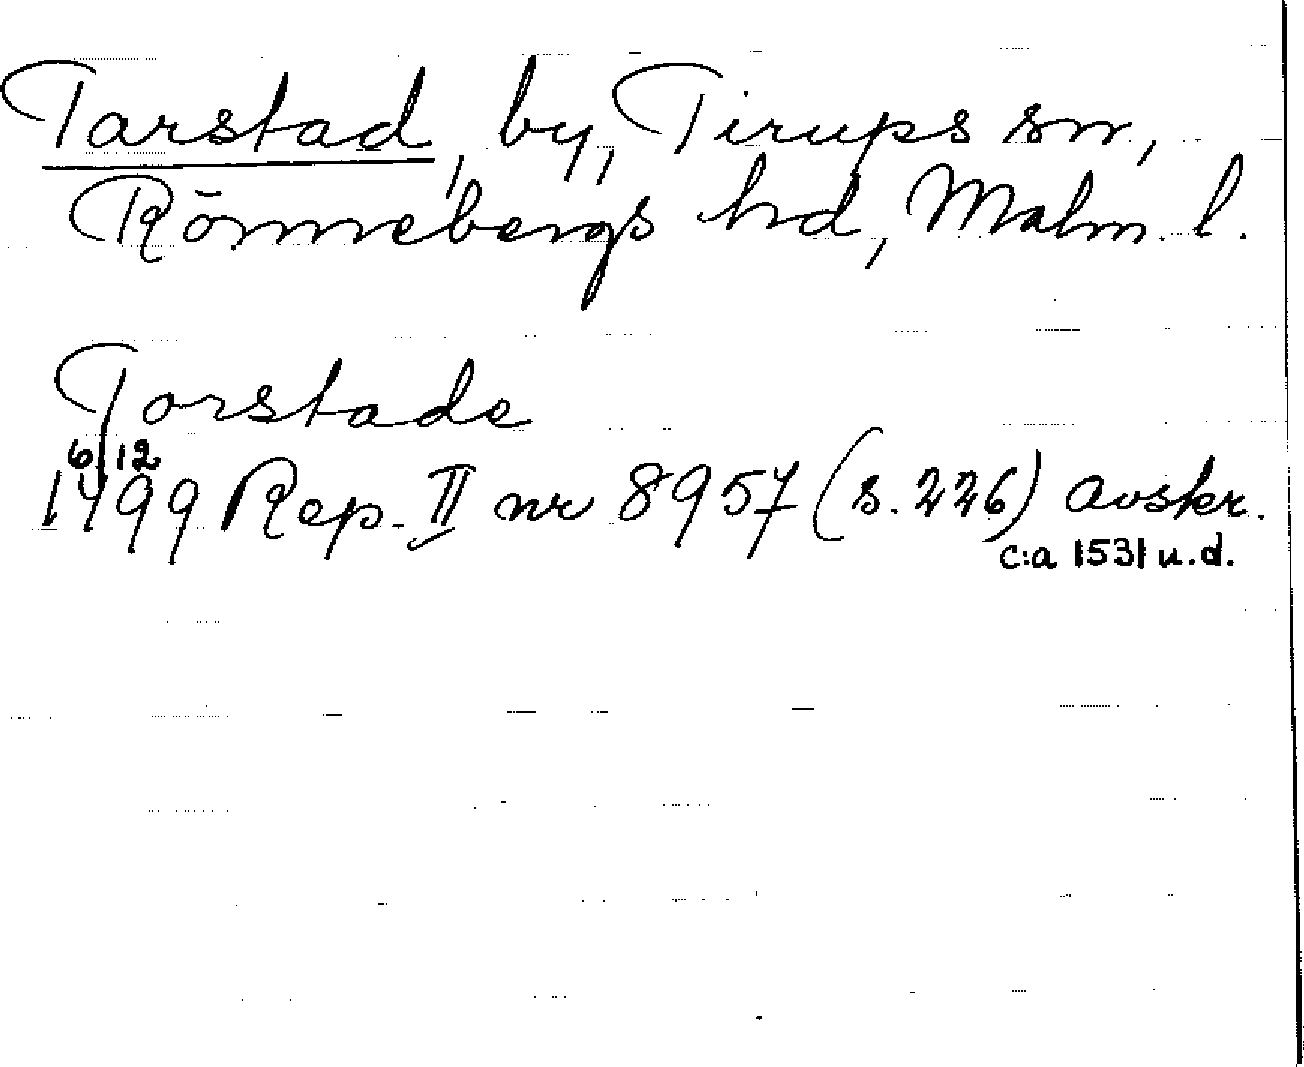 Tarstad, by, Tirups sn,
Rönnebergs hd, Malm. l.
Torstade
6/12
1499 Rep. II nr 8957 (s. 226) avskr.
c:a 1531 u.d.